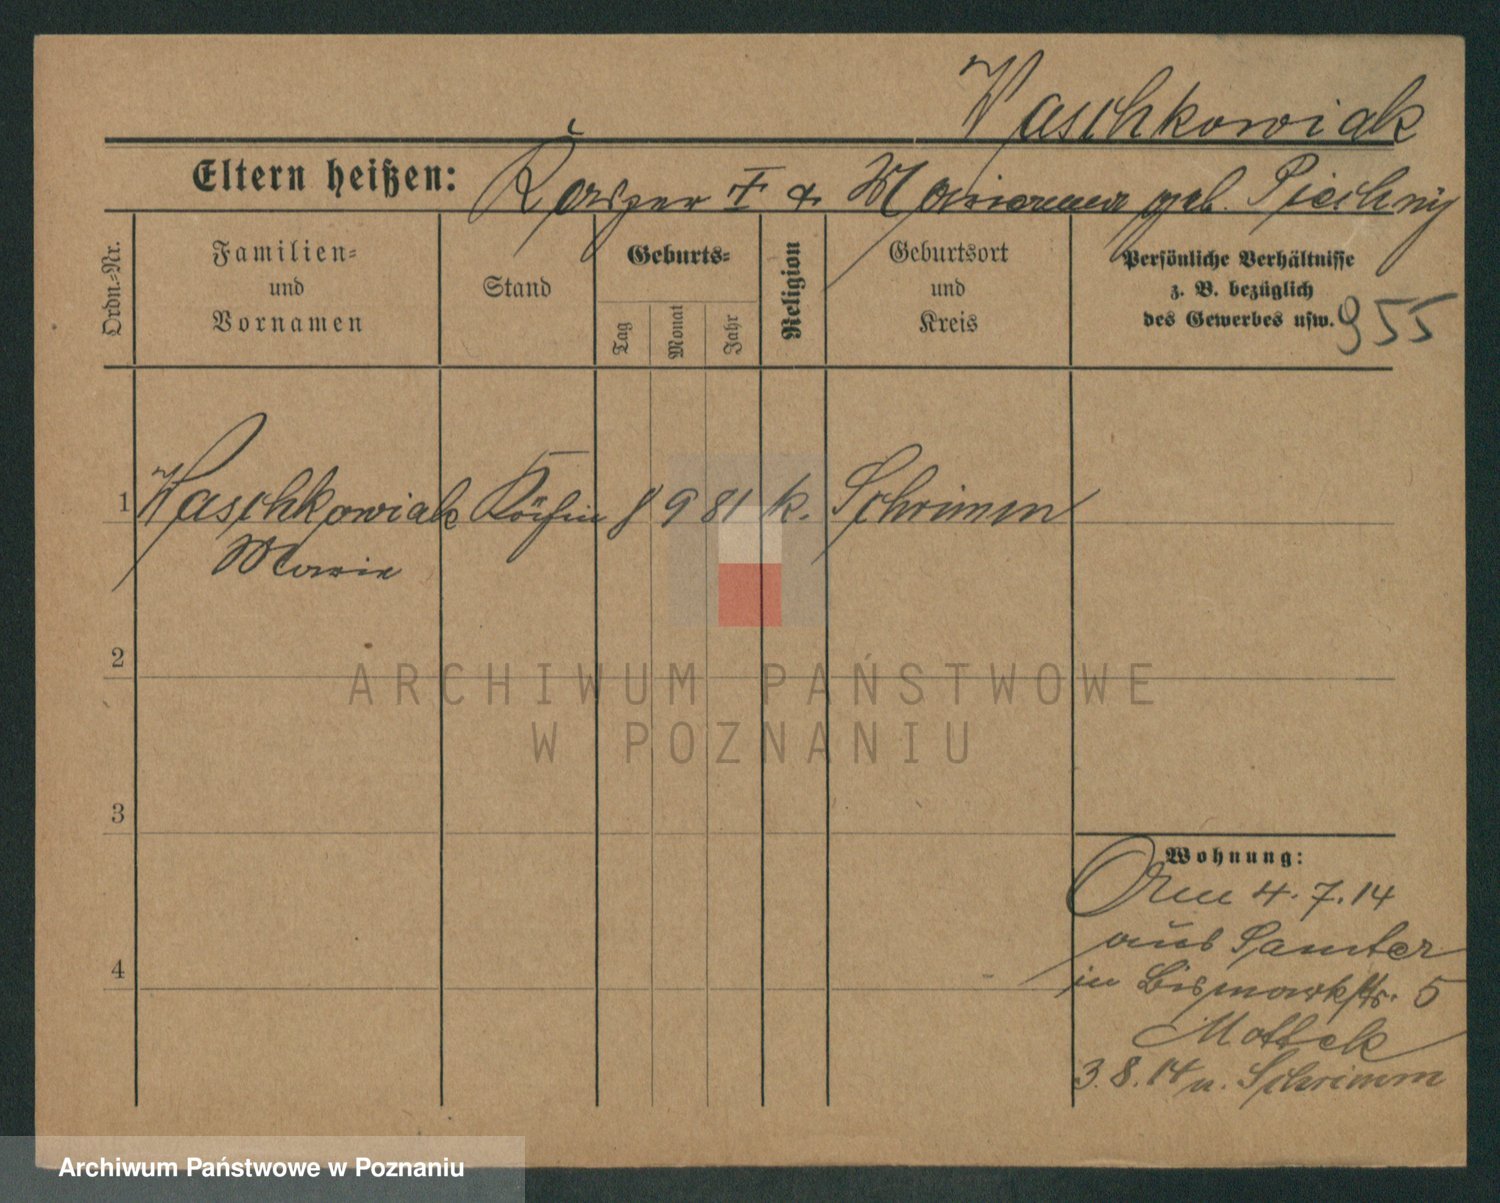 Waschkowiak
Eltern heißen: Kasper † & Marianna geb. Piechny
Ordn.-Nr.
Familien-
und
Vornamen
Stand
Geburts-
Tag
Monat
Jahr
Religion
Geburtsort
und
Kreis
Persönliche Verhältnisse
z. B. bezüglich
des Gewerbes usw.
955
1 Waschkowiak Köchin 8 9 81 k. Schrimm
Marie
2
ARCHIWUM PAŃSTWOWE
W POZNANIU
3
Wohnung:
4.7.14
aus Samter
4
in Bismarkstr. 5
Mottek
3.8.14 n. Schrimm
Archiwum Państwowe w Poznaniu